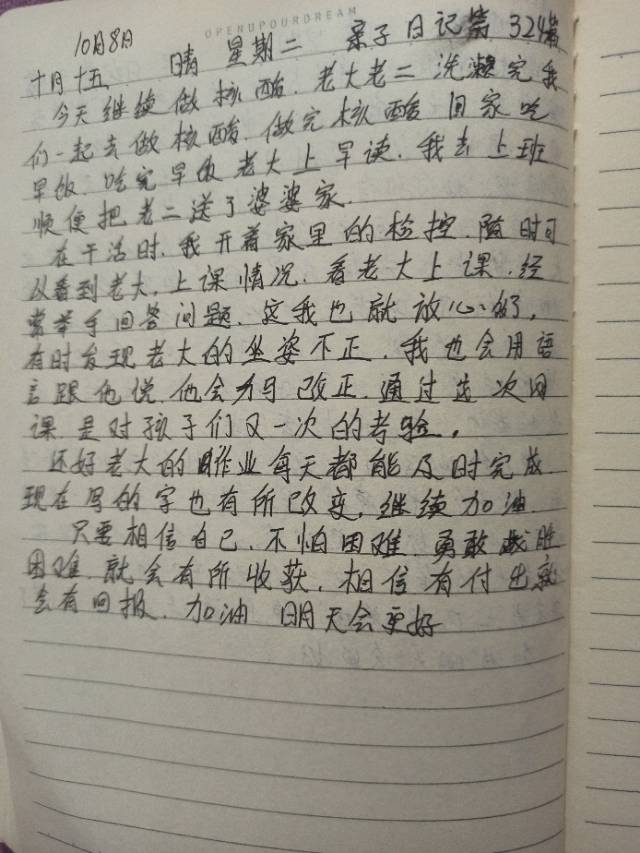 OPENUPOURDREAM
10月8日
十月十五 晴 星期二 亲子日记第324篇
今天继续做核酸.老大老二洗漱完我
们一起去做核酸.做完核酸回家吃
早饭.吃完早饭老大上早读.我去上班
顺便把老二送了婆婆家.
在干活时.我开着家里的检控.随时可
以看到老大.上课情况.看老大上课.经
常举手回答问题.这我也就放心了.
有时发现老大的坐姿不正.我也会用语
言跟他说.他会马改正.通过这次网
课是对孩子们又一次的考验。
还好老大的作业每天都能及时完成
现在写的字也有所改变.继续加油.
只要相信自己.不怕困难.勇敢战胜
困难.就会有所收获.相信有付出就
会有回报.加油 明天会更好